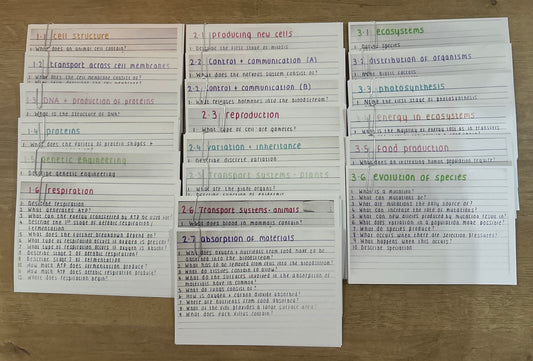 1.1 cell structure
1. What does an animal cell contain?
1.2 transport across cell membranes
1. What does the cell membrane consist of?
1.3 DNA + production of proteins
1. What is the structure of DNA?
1.4 proteins
1. What does the variety of protein shapes +
1.5 genetic engineering
1.6 respiration
1. Describe respiration
2. What generates ATP?
3. What can the energy transferred by ATP be used for?
4. Describe the 1st stage of aerobic respiration/
fermentation
5. What does the further breakdown depend on?
6. What type of respiration occurs if oxygen is present?
7. What type of respiration occurs if oxygen is absent?
8. Describe stage 2 of aerobic respiration
9. Describe stage 2 of fermentation
10. How much ATP does fermentation produce?
11. How much ATP does aerobic respiration produce?
12. Where does respiration begin?
2.1 producing new cells
1. Describe the first stage of mitosis
2.2 control + communication (A)
1. What does the nervous system consist of?
2.2 control + communication (B)
1. What releases hormones into the bloodstream?
2.3 reproduction
1. What type of cell are gametes?
2.4 variation + inheritance
1. Describe discrete variation
2.5 transport systems - plants
1. What are the plant organs?
2.6 transport systems - animals
1. What does blood in mammals contain?
2.7 absorption of materials
1. What does oxygen + nutrients from food have to be
absorbed into the bloodstream?
2. What has to be removed from cells into the bloodstream?
3. What do tissues contain to allow?
4. What do the surfaces involved in the absorption of
materials have in common?
5. What do lungs consist of?
6. How is oxygen + carbon dioxide absorbed?
7. Where are nutrients from food absorbed?
8. What in the villi provides a large surface area?
9. What does each villus contain?
3.1 ecosystems
1. Define species
3.2 distribution of organisms
1. Define biotic factors
3.3 photosynthesis
1. Name the first stage of photosynthesis
3.4 energy in ecosystems
1. How is the majority of energy lost as it transfers
3.5 food production
1. What does an increasing human population require?
3.6 evolution of species
1. What is a mutation?
2. What can mutations be?
3. What are mutations the only source of?
4. What can increase the rate of mutations?
5. What can new alleles produced by mutation result in?
6. What does variation in a population make possible?
7. What do species produce?
8. What occurs when there are selection pressures?
9. What happens when this occurs?
10. Describe speciation